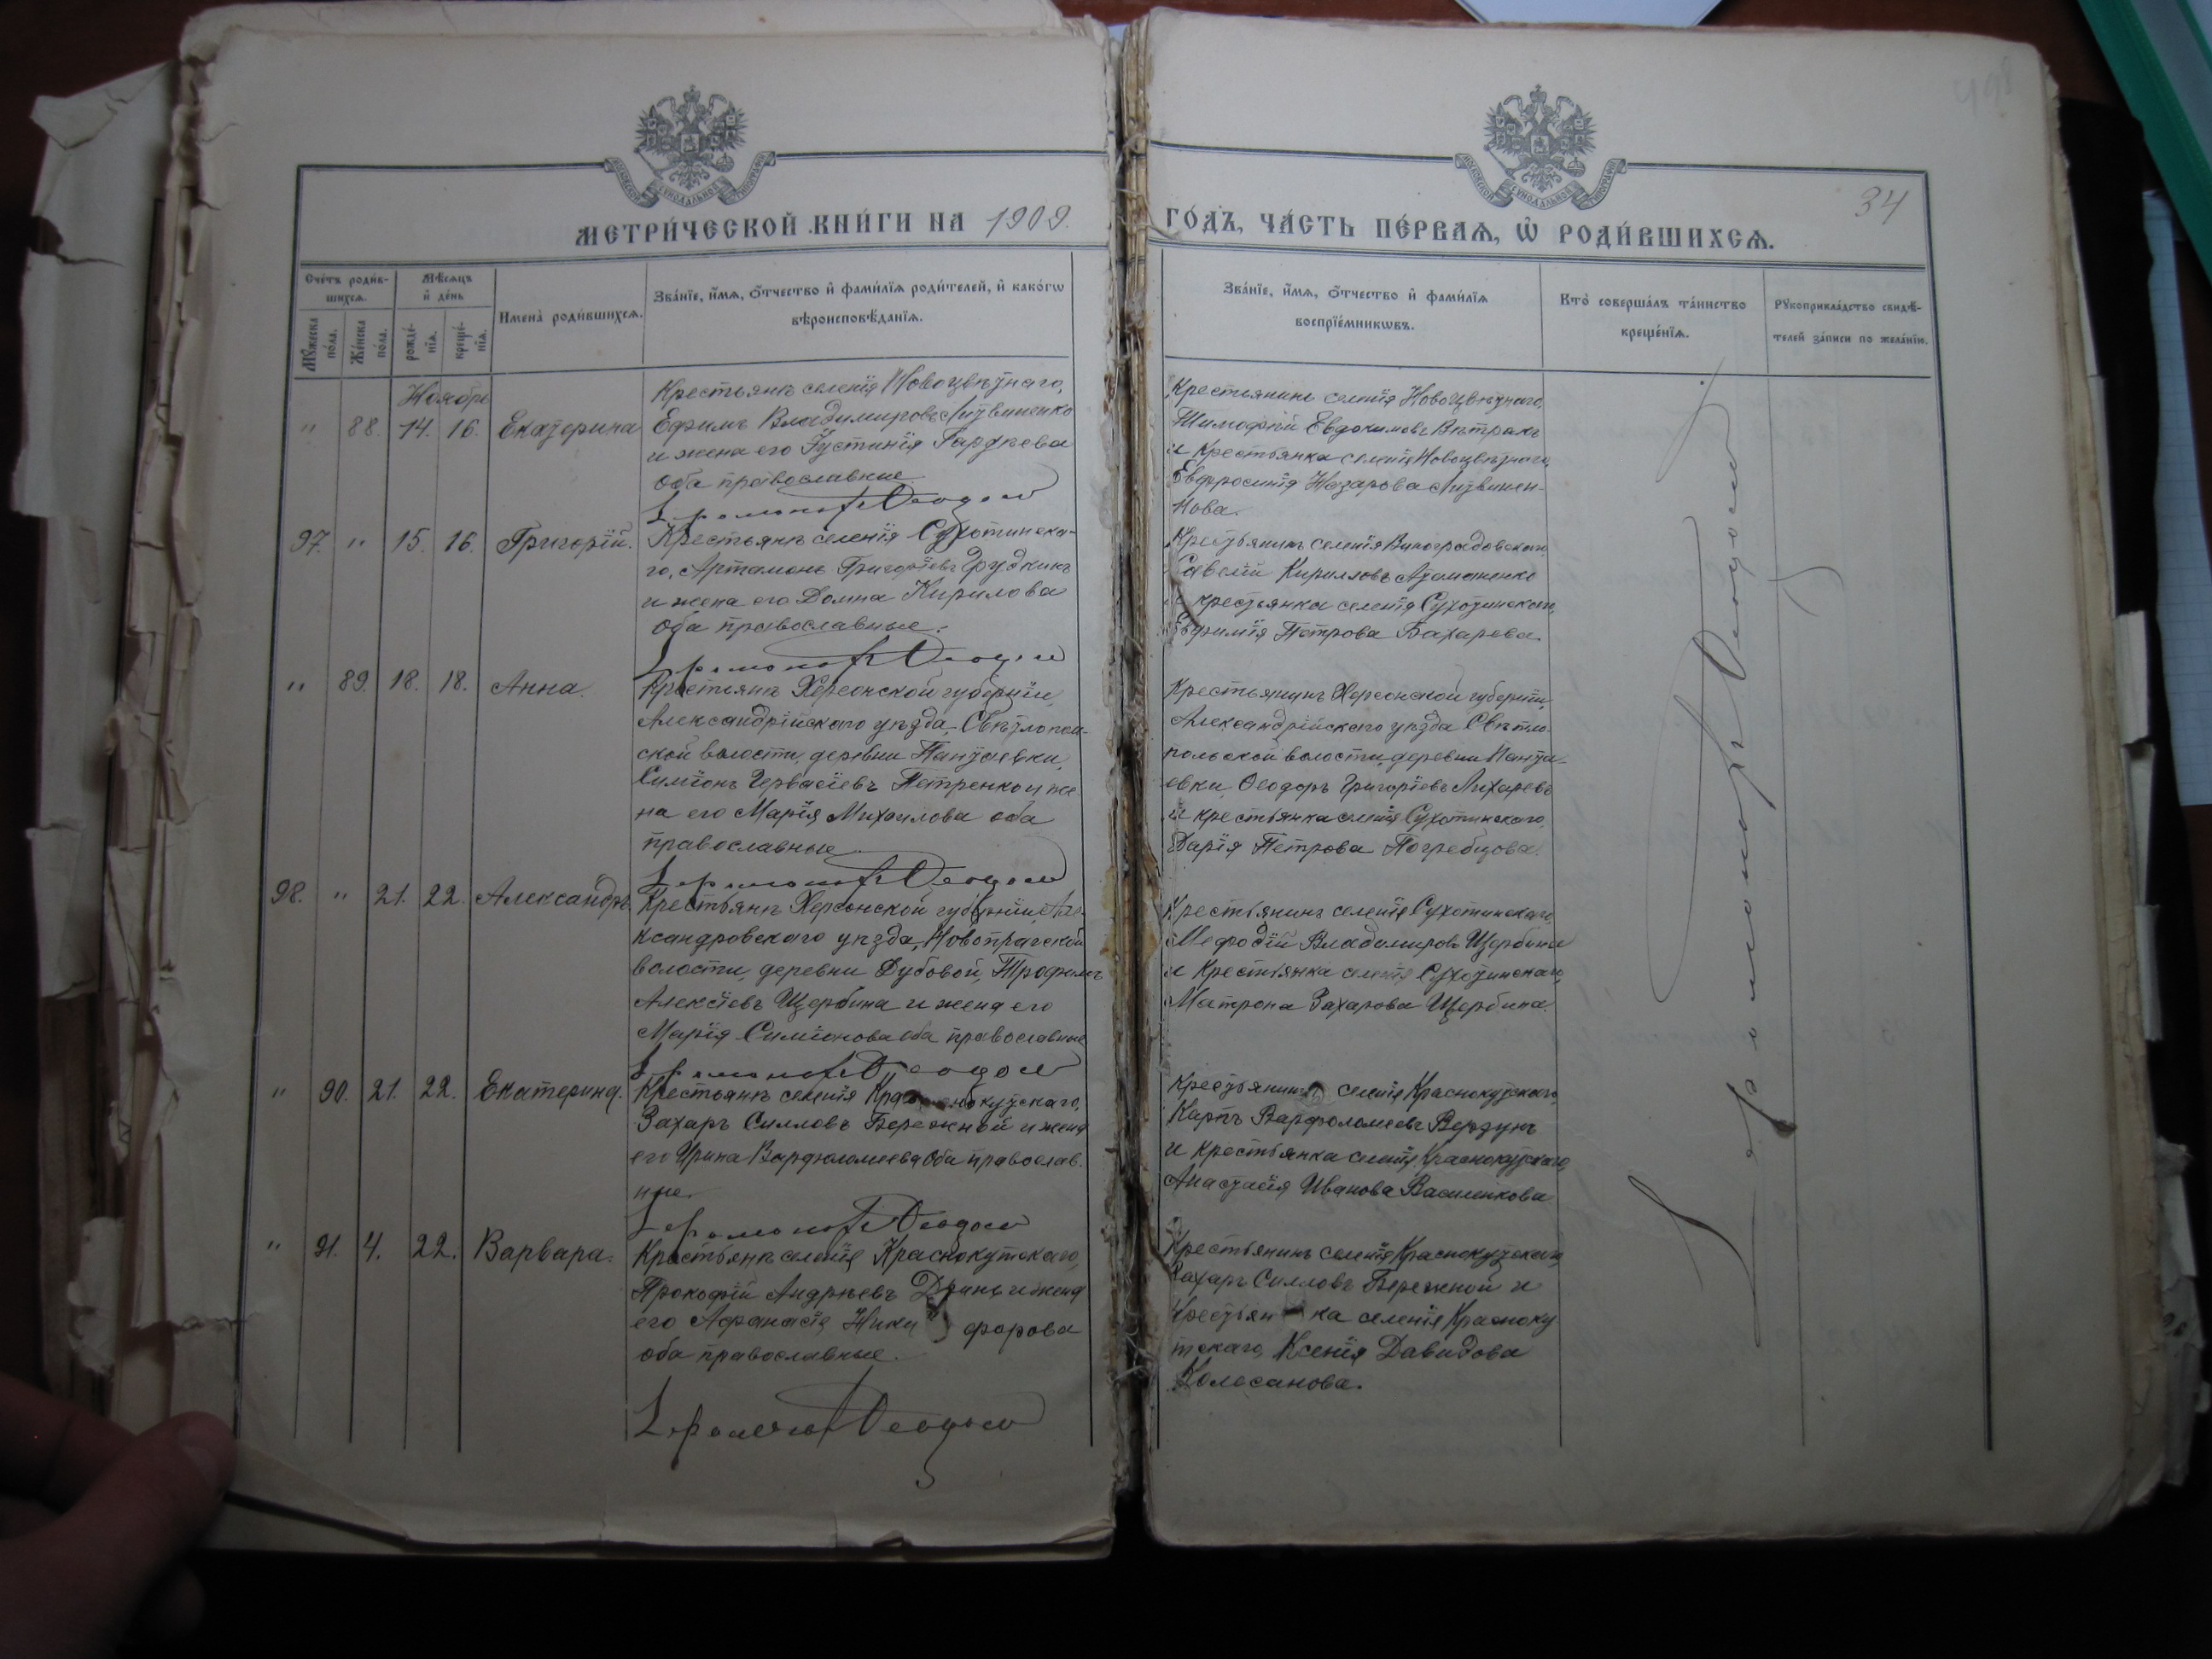 МЕТРИ́ЧЕСКОЙ КНИ́ГИ НА 1909.
ГО́ДЪ, ЧА́СТЬ ПЕ́РВАѦ, Ѡ҆ РОДИ́ВШИХСѦ.
34
Сче́тъ роди́в-
шихсѧ.
Мѣ́сѧцъ
и҆ де́нь
Мꙋ́жеска
по́ла.
Же́нска
по́ла.
рожде́-
нїѧ.
креще́-
нїѧ.
Имена̀ роди́вшихсѧ.
Зва́нїе, и҆́мѧ, ѻ҆́тчество и҆ фами́лїѧ роди́телей, и҆ како́гѡ
вѣроисповѣ́данїѧ.
Зва́нїе, и҆́мѧ, ѻ҆́тчество и҆ фами́лїѧ
воспрїе́мникѡвъ.
Кто̀ соверша́лъ та́инство
креще́нїѧ.
Рꙋкоприкла́дство свидѣ́-
телей за́писи по жела́нїю.
Ноябрь
" 88. 14. 16. Екатерина
Крестьянъ селенія Новоцвѣтнаго,
Ефимъ Владимировъ Литвиненко
и жена его Іустинія Гордѣева
оба православные
Іеромонахъ Ѳеодосій
Крестьянинъ селенія Новоцвѣтнаго,
Тимофей Евдокимовъ Вѣтракъ
и крестьянка селенія Новоцвѣтнаго,
Евфросинія Назарова Литвинен-
кова.
97. " 15. 16. Григорій.
Крестьянъ селенія Сухотинска-
го, Артамонъ Григоріевъ
и жена его Домна Кирилова
оба православные.
Іеромонахъ Ѳеодосій
Крестьянинъ селенія Виноградовскаго
Савелій Кирилловъ Атаманенко
и крестьянка селенія Сухотинскаго,
Евфимія Петрова Бахарева.
" 89. 18. 18. Анна.
Крестьянъ Херсонской губерніи,
Александрійскаго уѣзда, Свѣтлополь-
ской волости, деревни Пантаевки,
Симіонъ Гервасіевъ Петренко и же
на его Марія Михаилова оба
православные
Іеромонахъ Ѳеодосій
Крестьянинъ Херсонской губерніи,
Александрійскаго уѣзда Свѣтло-
польской волости, деревни Панта-
евки, Ѳеодоръ Григоріевъ Лихаревъ
и крестьянка селенія Сухотинскаго,
Дарія Петрова Погребцова.
98. " 21. 22. Александръ
Крестьянъ Херсонской губерніи, Але-
ксандровскаго уѣзда, Новопрагской
волости, деревни Дубовой, Трофимъ
Алексіевъ Щербина и жена его
Марія Симіонова оба православные
Іеромонахъ Ѳеодосій
Крестьянинъ селенія Сухотинскаго,
Мефодій Владимировъ Щербина
и крестьянка селенія Сухотинскаго,
Матрона Захарова Щербина.
" 90. 21. 22. Екатерина.
Крестьянъ селенія Краснокутскаго,
Захаръ Силловъ Бережной и жена
его Ирина Варфоломеева оба православ-
ные.
Іеромонахъ Ѳеодосій
Крестьянинъ селенія Краснокутскаго,
Карпъ Варфоломеевъ Вердунъ
и крестьянка селенія Краснокутскаго,
Анастасія Иванова Василенкова
" 91. 4. 22. Варвара.
Крестьянъ селенія Краснокутскаго,
Прокофій Андрѣевъ и жена
его Афанасія Никифорова
оба православные.
Іеромонахъ Ѳеодосій
Крестьянинъ селенія Краснокутскаго
Захаръ Силловъ Бережной и
крестьянка селенія Красноку
тскаго, Ксенія Давидова
Колесанова.
Іеромонахъ Ѳеодосій